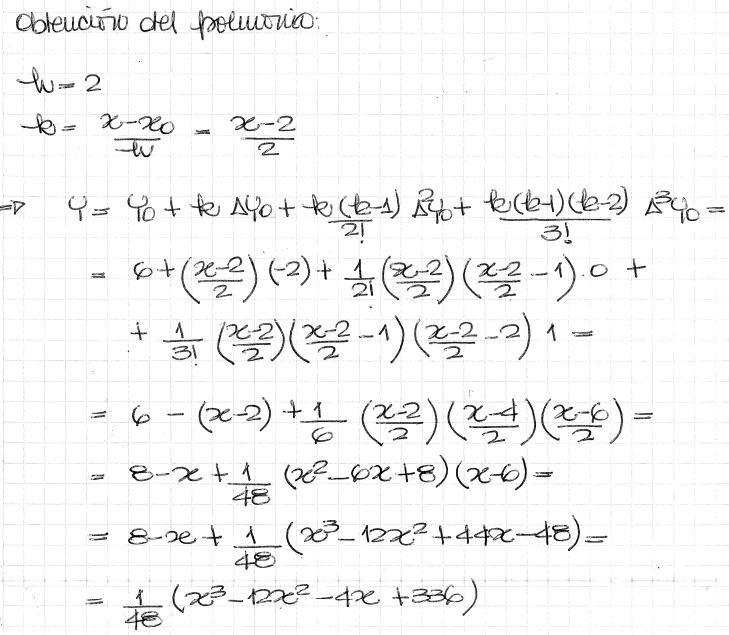 Obtención del polinomio:
h = 2
k = \frac{x-x_0}{h} = \frac{x-2}{2}
⇒ Y = Y_0 + k ΔY_0 + \frac{k(k-1)}{2!} Δ^2Y_0 + \frac{k(k-1)(k-2)}{3!} Δ^3Y_0 =
= 6 + (\frac{x-2}{2})(-2) + \frac{1}{2!}(\frac{x-2}{2})(\frac{x-2}{2} - 1).0 +
+ \frac{1}{3!}(\frac{x-2}{2})(\frac{x-2}{2} - 1)(\frac{x-2}{2} - 2) 1 =
= 6 - (x-2) + \frac{1}{6}(\frac{x-2}{2})(\frac{x-4}{2})(\frac{x-6}{2}) =
= 8-x + \frac{1}{48}(x^2-6x+8)(x-6) =
= 8-x + \frac{1}{48}(x^3-12x^2+44x-48) =
= \frac{1}{48}(x^3-12x^2-4x+336)